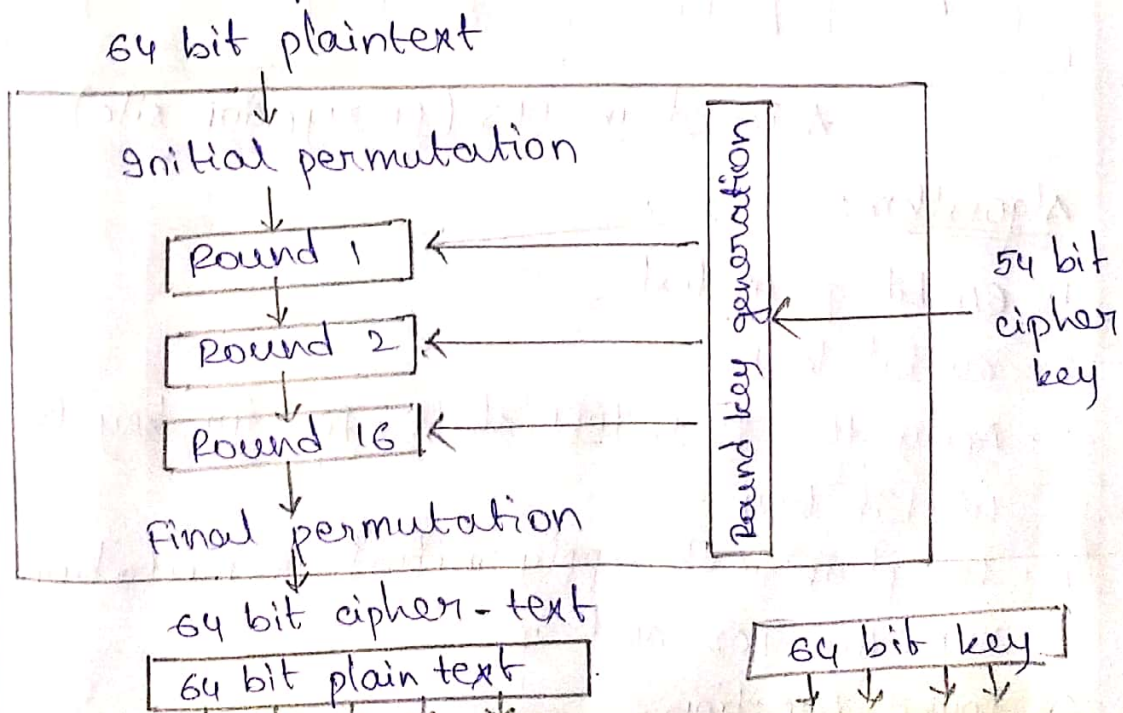 64 bit plaintext
Initial permutation
Round 1
Round 2
Round 16
Final permutation
Round key generation
54 bit
cipher
key
64 bit cipher-text
64 bit plain text
64 bit key